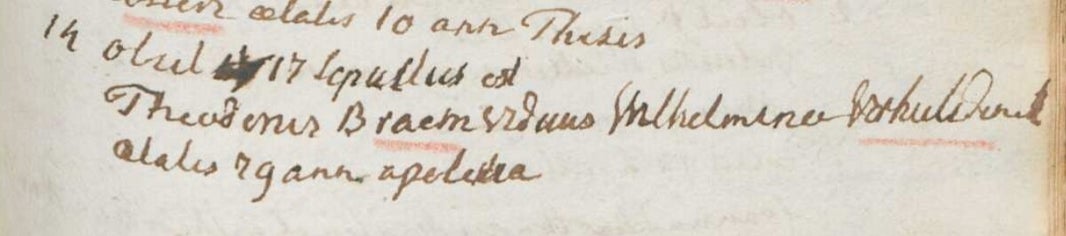 aetatis 10 ann Thisis
14 obiit 17 Sepultus est
Theodorus Braem viduus Wilhelmina Verhulsdonck
aetatis 79 ann. apolexia